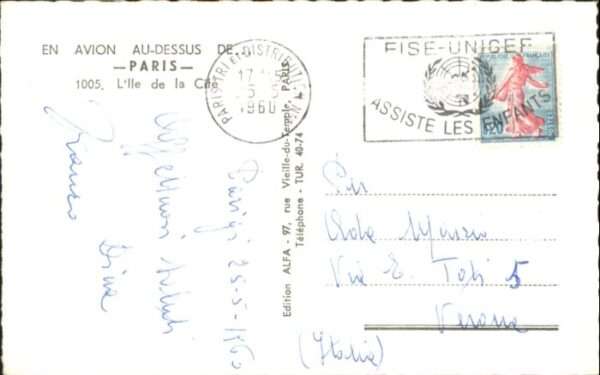 EN AVION AU-DESSUS DE
— PARIS —
1005. L'Ile de la Cité
Parigi 25-5-1960
Affettuosi saluti
Franco Dina
Edition ALFA - 97, rue Vieille-du-Temple, PARIS
Téléphone - TUR. 40-74
PARIS TRI et DISTRIBUTION
17
25-5
1960
FISE-UNICEF
ASSISTE LES ENFANTS
FRANÇAISE
0,20
POSTES
Via E. Toti 5
Verona
(Italia)